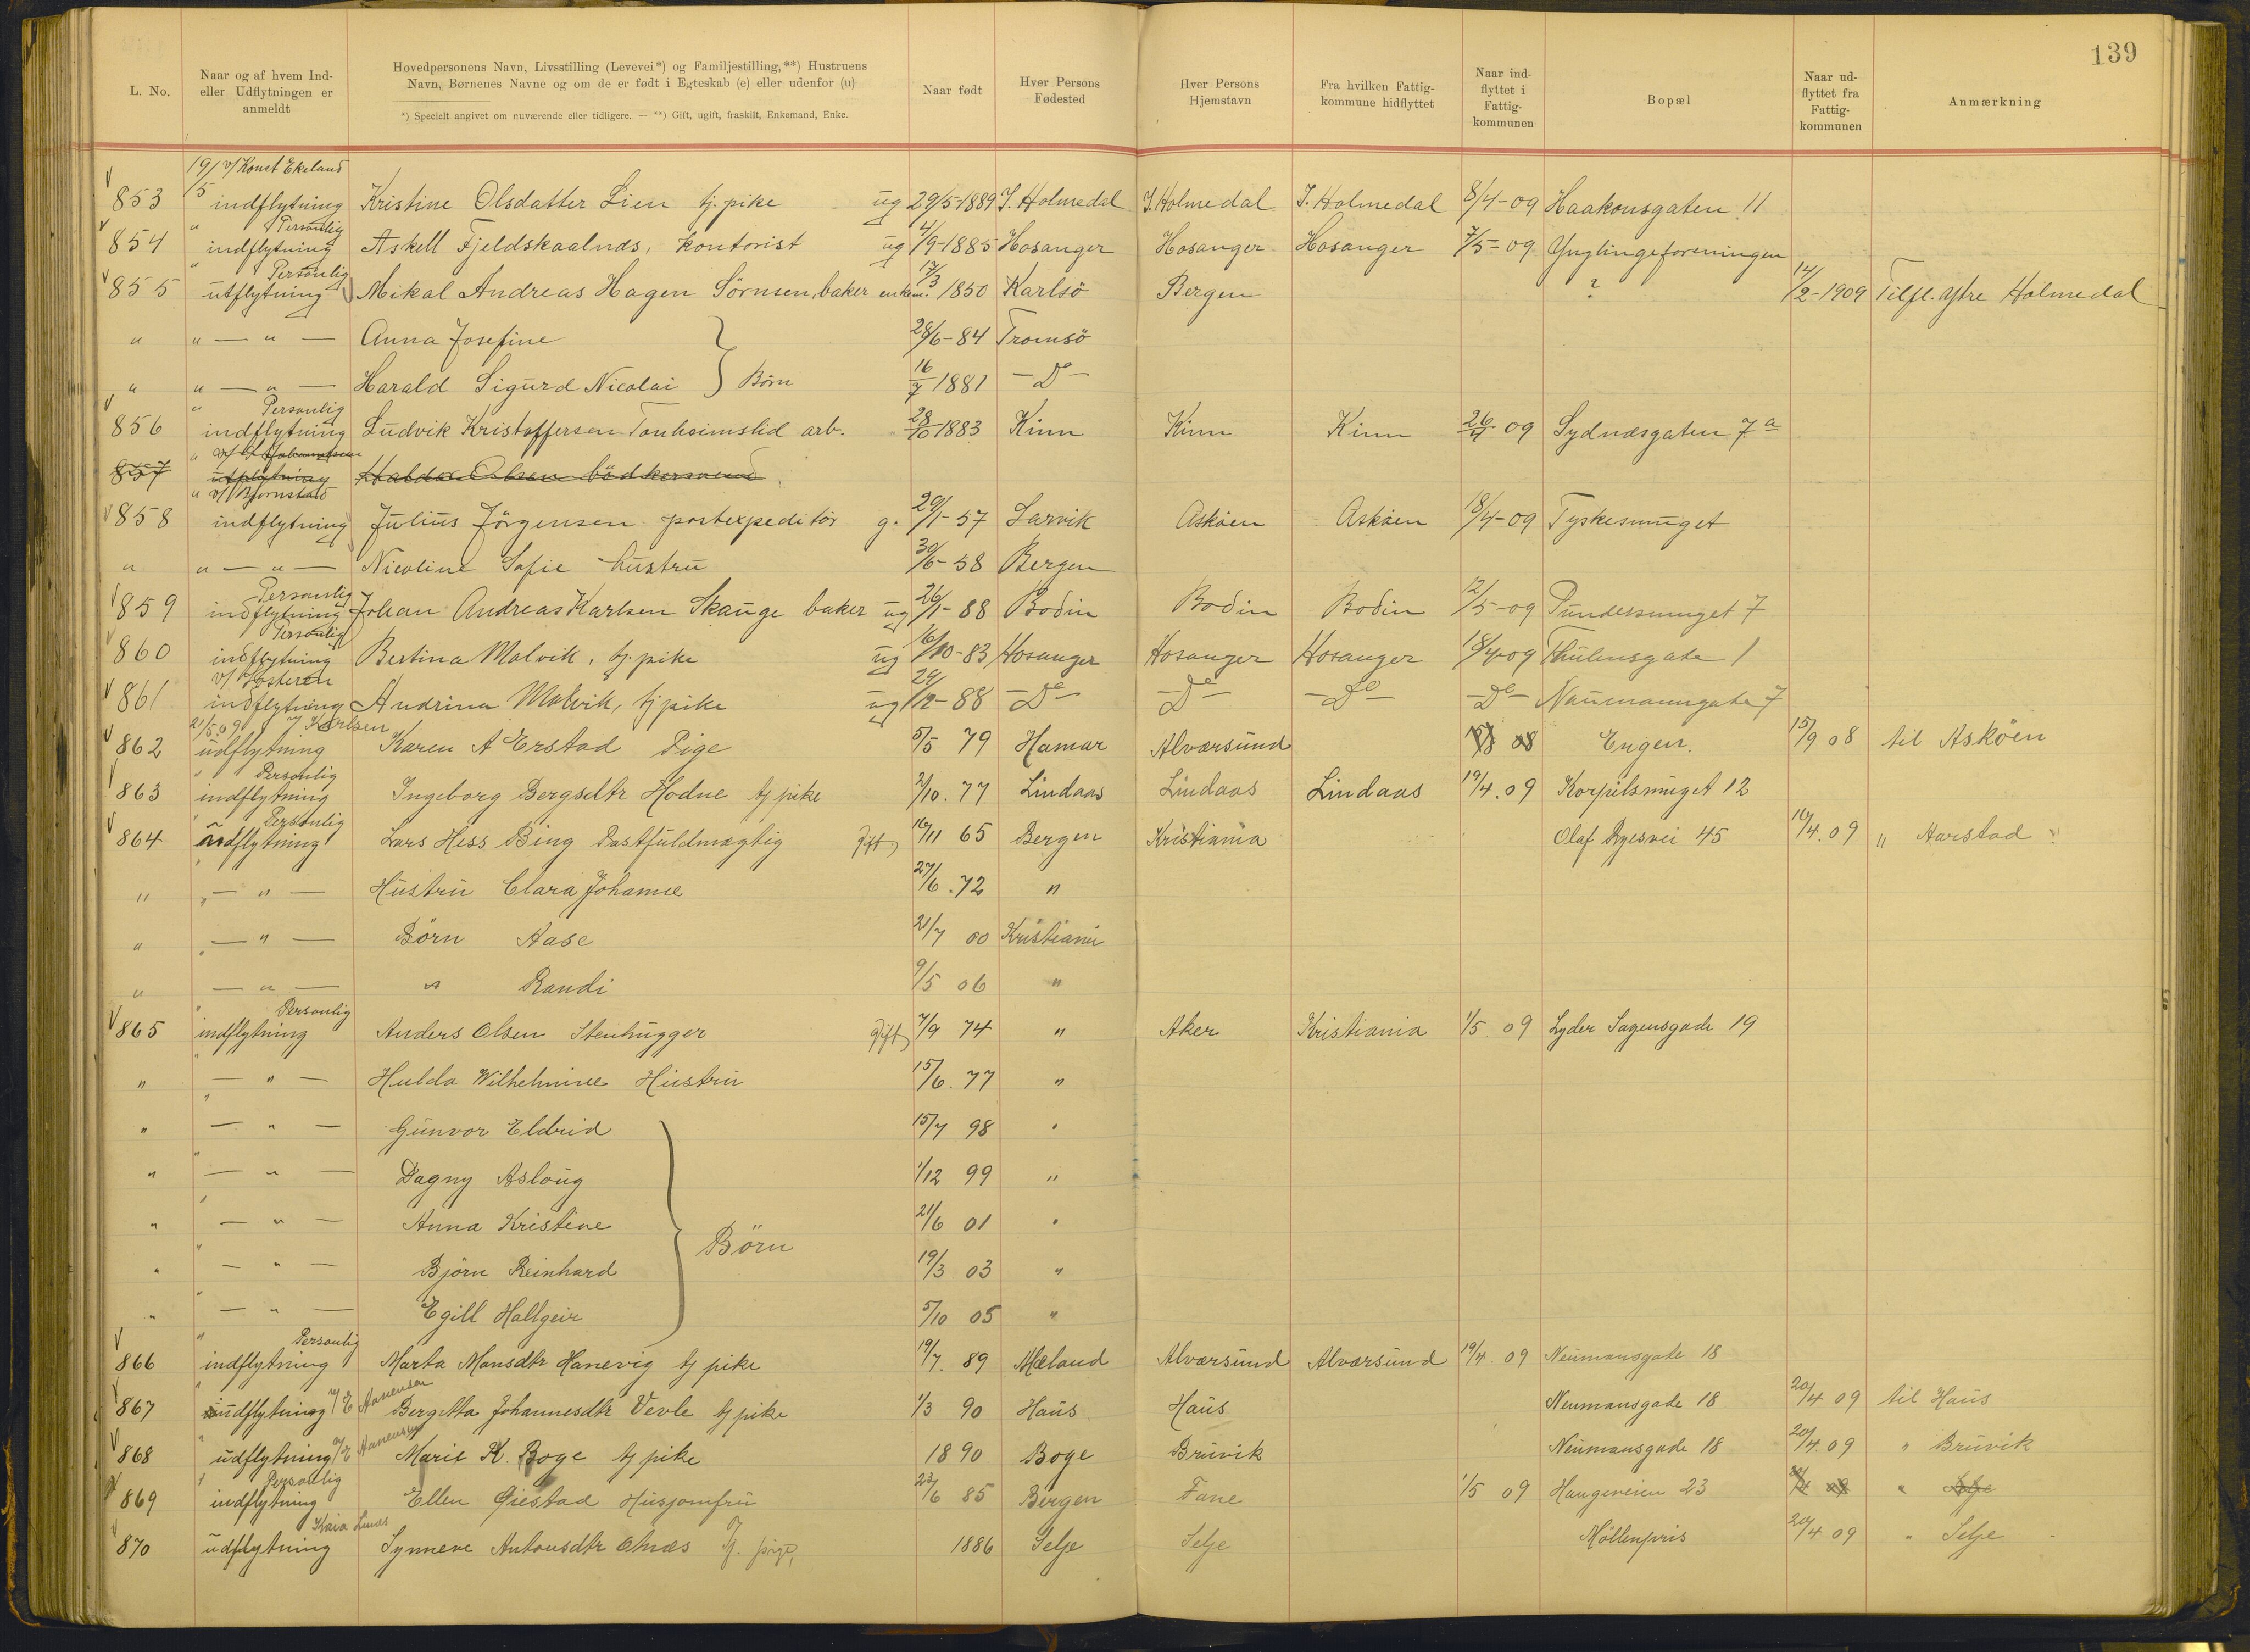 139
L. No.
Naar og af hvem Ind- eller Udflytningen er anmeldt
Hovedpersonens Navn, Livsstilling (Levevei*) og Familjestilling,**) Hustruens Navn, Børnenes Navne og om de er født i Egteskab (e) eller udenfor (u)
*) Specielt angivet om nuværende eller tidligere. — **) Gift, ugift, fraskilt, Enkemand, Enke.
Naar født
Hver Persons Fødested
Hver Persons Hjemstavn
Fra hvilken Fattig- kommune hidflyttet
Naar ind- flyttet i Fattig- kommunen
Bopæl
Naar ud- flyttet fra Fattig- kommunen
Anmærkning
19/5 v/ Konst Ekeland
853 indflytning Kristine Olsdatter Lien tj. pike ug 29/5-1889 I. Holmedal I. Holmedal I. Holmedal 8/4-09 Haakonsgaten 11
" Personlig
854 indflytning Askell Fjeldskaalnæs, kontorist ug 4/9-1885 Hosanger Hosanger Hosanger 7/5-09 Ynglingeforeningen
" Personlig
855 utflytning Mikal Andreas Hagen Sörnsen, baker enkem. 17/3 1850 Karlsö Bergen ? 14/2-1909 Tilfl. Ytre Holmedal
" " — " — Anna Josefine 28/6-84 Tromsö
" " — " — Harald Sigurd Nicolai } Börn 16/7 1881 — Do —
" Personlig
856 indflytning Ludvik Kristoffersen Tonheimslid arb. 28/10 1883 Kinn Kinn Kinn 26/4 09 Sydnæsgaten 7a
857 utflytning Haldor Olsen bödkersvend
" v/ Bjornstad
858 indflytning Julius Jörgensen postexpeditör g. 29/1-57 Larvik Asköen Asköen 18/4-09 Tyskesmuget
" " — " — Nicoline Sofie hustru 30/6-58 Bergen
Personlig
859 indflytning Johan Andreas Karlsen Skauge baker ug 26/1-88 Bodin Bodin Bodin 12/5-09 Pundersmuget 7
Personlig
860 indflytning Bertina Molvik, tj. pike ug 16/10-83 Hosanger Hosanger Hosanger 18/4-09 Thulensgate 1
v/ Søsteren
861 indflytning Andrina Molvik, tj pike ug 29/12-88 — Do — — Do — — Do — — Do — Naumannsgate 7
21/5 09 v/ Karlsen
862 udflytning Karen A Erstad Pige 5/5 79 Hamar Alværsund 15/8 08 Engen. 15/9 08 til Asköen
" Personlig
863 indflytning Ingeborg Bergsdtr Hodne tj pike 2/10. 77 Lindaas Lindaas Lindaas 19/4. 09 Korpilsmuget 12
" Personlig
864 udflytning Lars Hess Bing Postfuldmægtig Gift 16/11 65 Bergen Kristiania Olaf Ryesvei 45 16/4. 09 " Aarstad
" " — " — Hustru Clara Johanne 27/6. 72 "
" " — " — Börn Aase 21/7 00 Kristiania
" — " — " Randi 9/5 06 "
" Personlig
865 indflytning Anders Olsen Stenhugger Gift 7/9 74 " Aker Kristiania 1/5 09 Lyder Sagensgade 19
" — " — Hulda Wilhelmine Hustru 15/6. 77 "
" — " — Gunvor Eldrid 15/7 98 "
" — " — Dagny Asloug 1/12 99 "
" — " — Anna Kristine 21/6 01 "
Börn
" — " — Björn Reinhard 19/3. 03 "
" — " — Egill Hallgeir 5/10 05 "
" Personlig
866 indflytning Marta Monsdtr Hanevig tj pike 19/7. 89 Mæland Alværsund Alværsund 19/4. 09 Neumansgate 18
" v/ E Hanensen
867 udflytning Bergitta Johannesdtr Vevle tj pike 1/3 90 Haus Haus Neumansgade 18 20/4 09 til Haus
" v/ E Hanensen
868 udflytning Marie K. Boge tj pike 1890 Boge Bruvik Neumansgade 18 20/4. 09 " Bruvik
" Personlig
869 indflytning Ellen Giestad Husjomfru 23/6 85 Bergen Fane 1/5 09 Haugeveien 23 20/4 09 " Selje
Kaia
870 udflytning Synneve Antonsdtr Osnæs Tj. pige, 1886 Selje Selje Möllenpris 20/4 09 " Selje